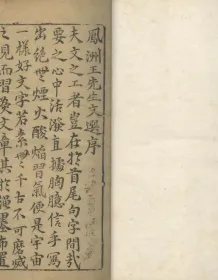 鳳洲王先生文選序
夫文之工者豈在於首尾句字間哉
要之心中活潑直據胸臆信手寫
出絕無煙火酸餡習氣便是宇宙
一樣好文字若素無千古不可磨滅
之見而習為文章其於繩墨布置